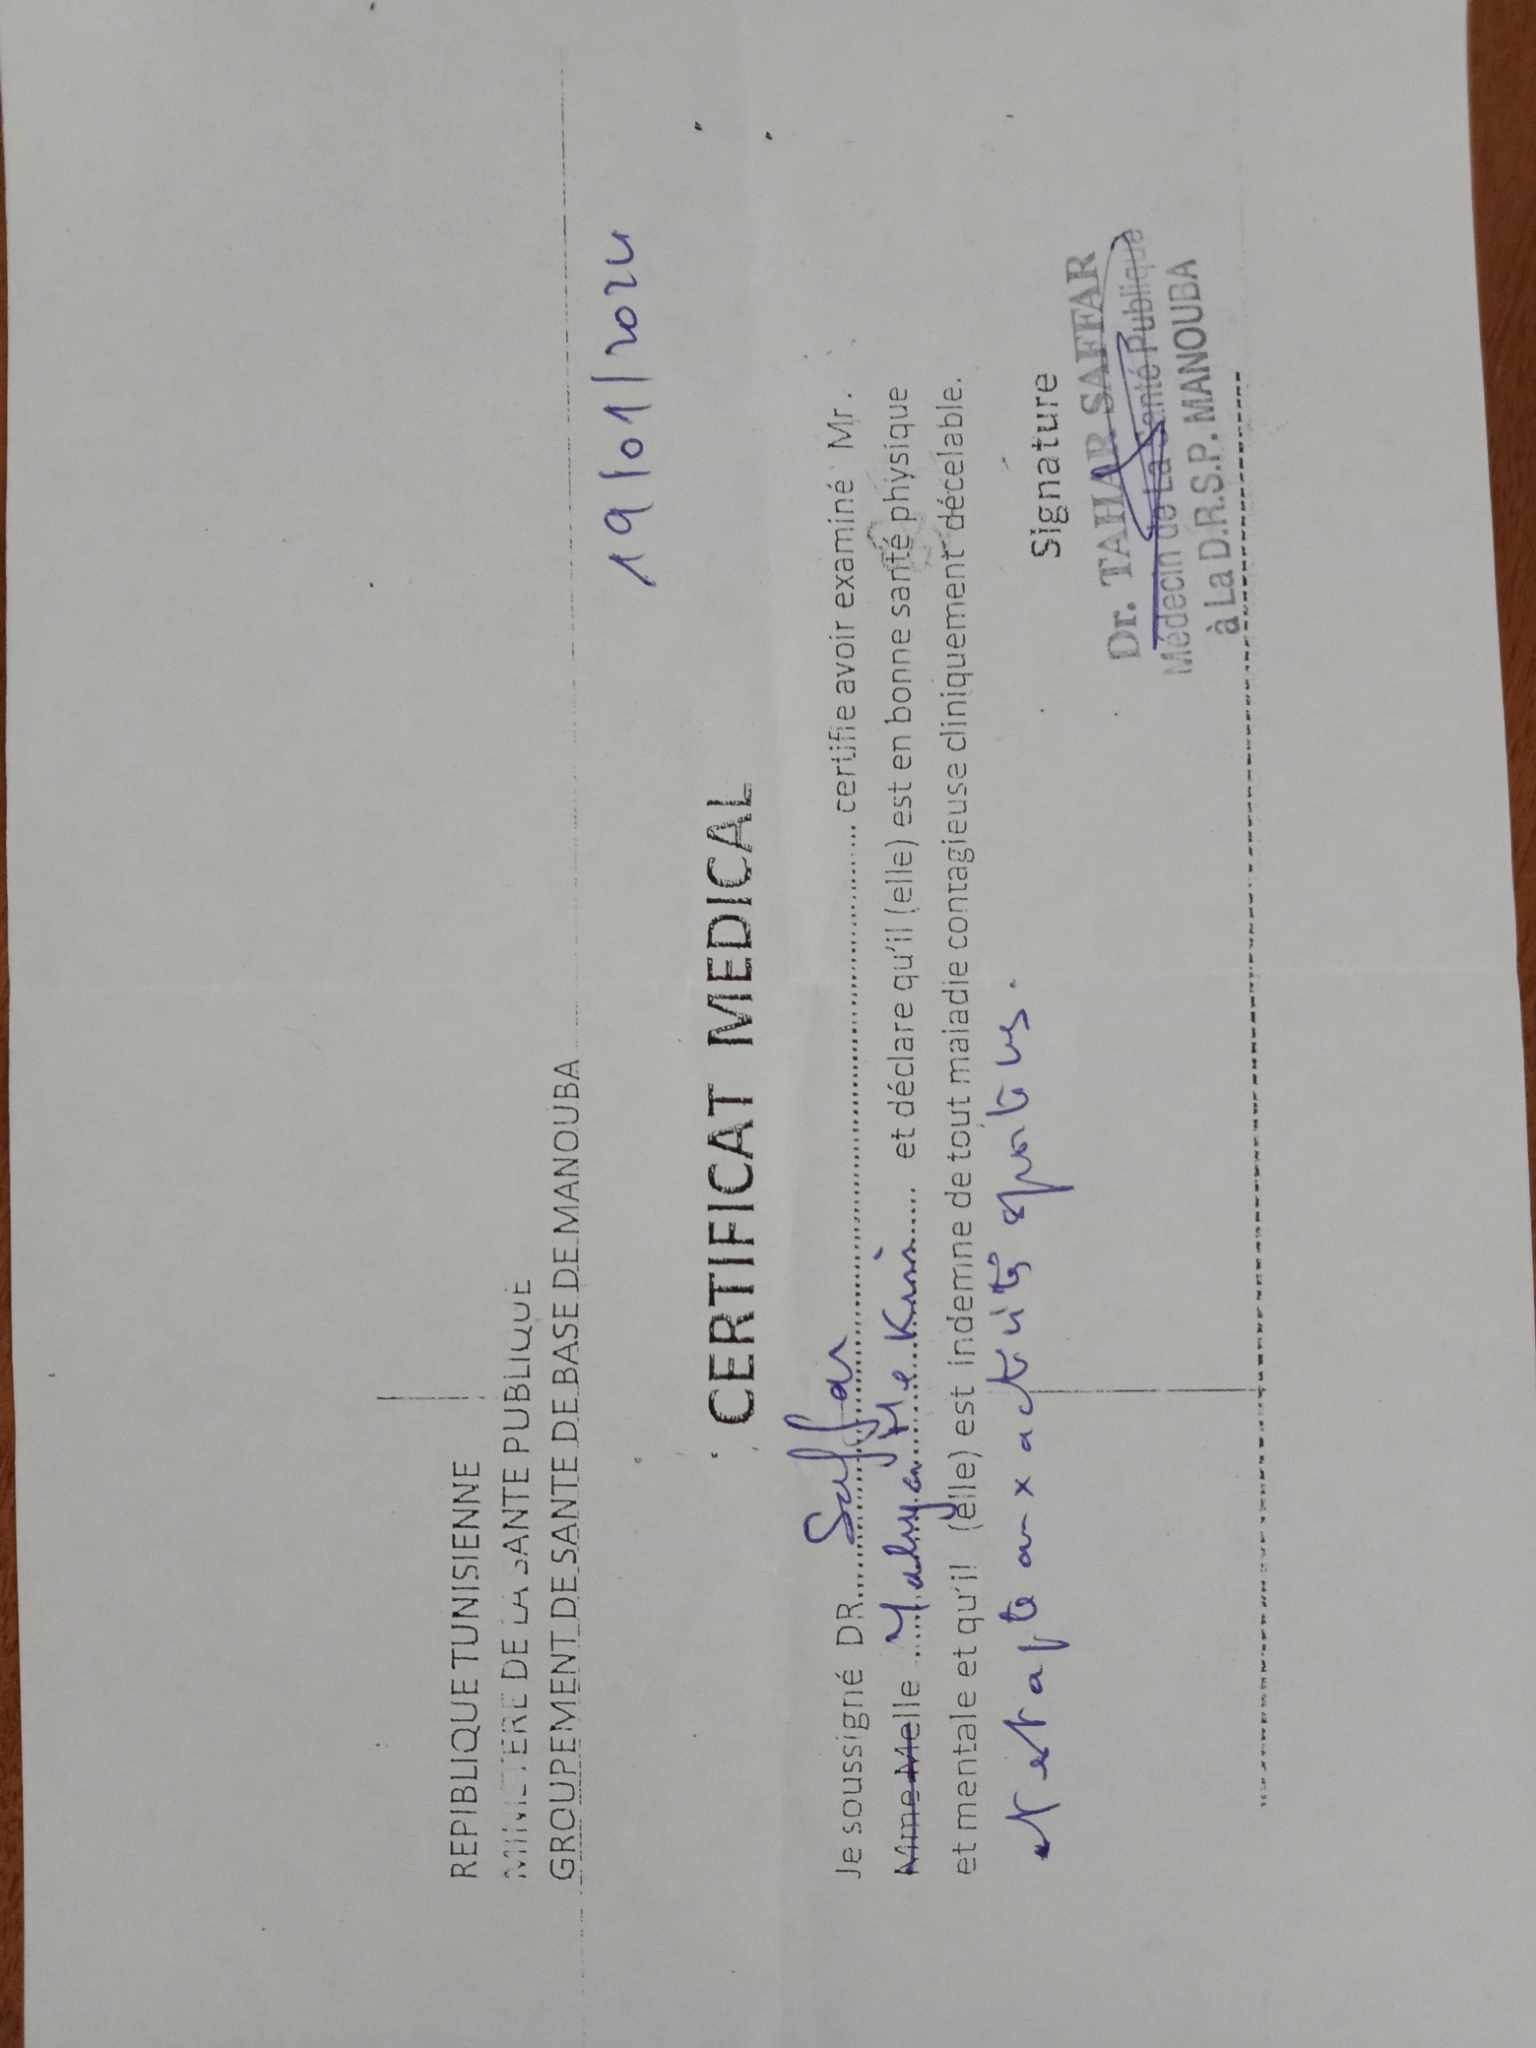 REPIBLIQUE TUNISIENNE
MINISTERE DE LA SANTE PUBLIQUE
GROUPEMENT DE SANTE DE BASE DE MANOUBA
19/01/2024
CERTIFICAT MEDICAL
Je soussigné DR. Saffar certifie avoir examiné Mr.
Mme Melle Yahya Mekini et déclare qu'il (elle) est en bonne santé physique
et mentale et qu'il (elle) est indemne de tout maladie contagieuse cliniquement décelable.
et est apte aux activités sportives.
Signature
Dr. TAHAR SAFFAR
Médecin de La Santé Publique
à La D.R.S.P. MANOUBA